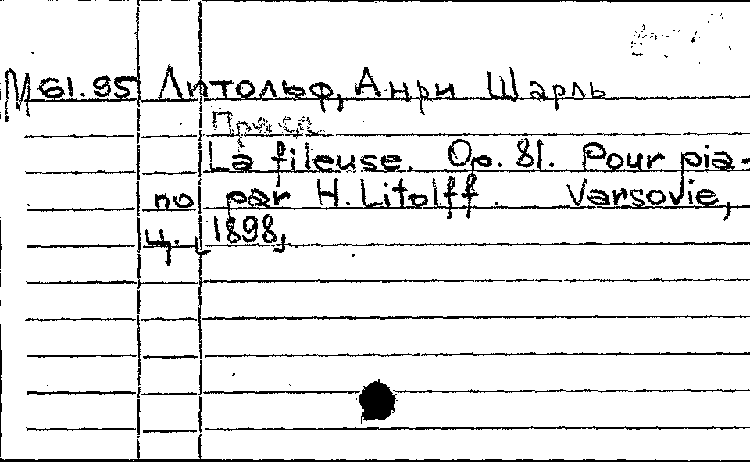 М 61.95 Литольф, Анри Шарль
La fileuse. Op. 81. Pour pia-
no par H. Litolff. Varsovie,
ц. 1898,